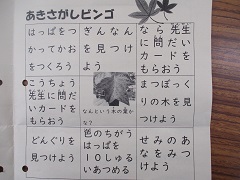 あきさがしビンゴ
はっぱをつ
かってかお
をつくろう
ぎんなん
を見つけ
よう
なら先生
に問だい
カードを
もらおう
こうちょう
先生に問だい
カードを
もらおう
なんという木の葉か
な？
まつぼっく
りの木を見
つけよう
どんぐりを
見つけよう
色のちがう
はっぱを
１０しゅる
いあつめる
せみのあ
なをみつ
けよう